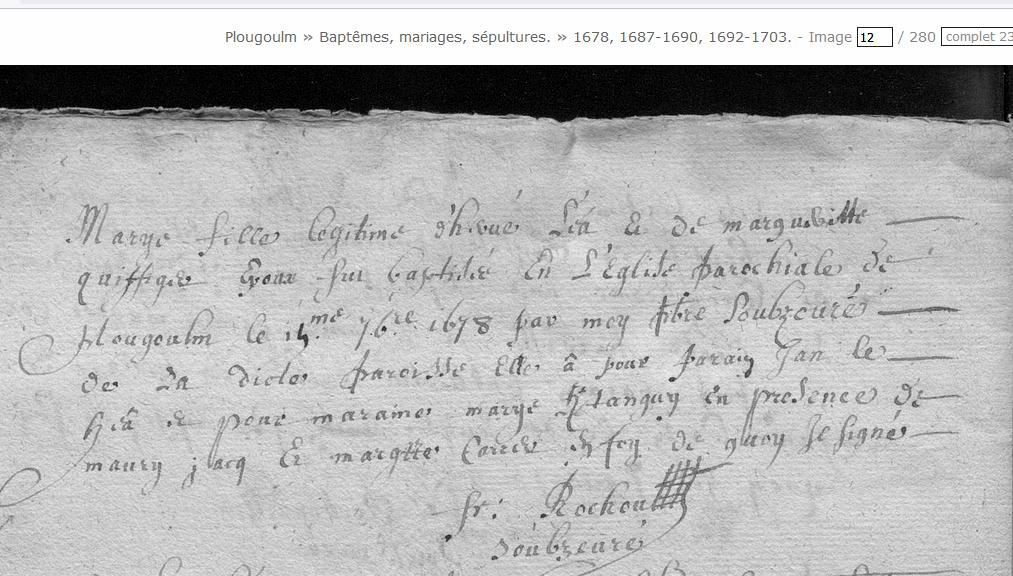 Plougoulm » Baptêmes, mariages, sépultures. » 1678, 1687-1690, 1692-1703. - Image 12 / 280 complet 23
Marye fille legitime d'hervé Léa & de margueritte
quiffiger Epoux fut baptisée En L'église parochiale de
plougoulm le 15me 7bre 1678 par moy pbre Soubzcuré
de La dicte paroisse Elle â pour parain Jan le
hea & pour maraine marye Tanguy En presence de
maury jacq Et margtte Corre En foy de quoy Je signé
fr: Rochou
Soubzcuré